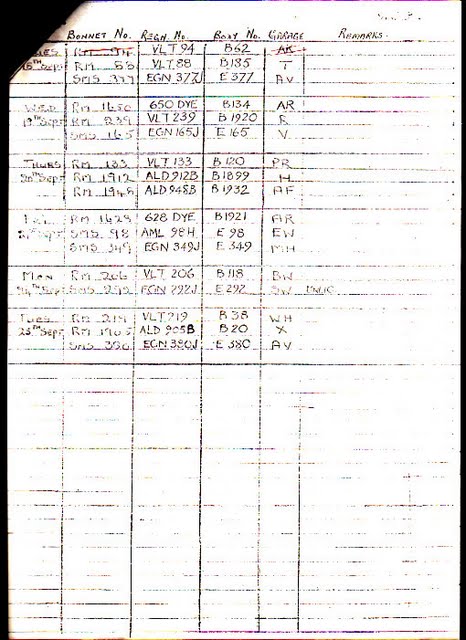 BONNET No. REGN. No. BODY No. GARAGE REMARKS.
TUES RM 94 VLT 94 B62 AK
18th Sept RM 88 VLT 88 B185 T
SMS 377 EGN 377J E377 AV
WED RM 1650 650 DYE B134 AR
19th Sept RM 239 VLT 239 B1920 R
SMS 165 EGN 165J E165 V
THURS RM 133 VLT 133 B120 PR
20th Sept RM 1912 ALD 912B B1899 H
RM 1948 ALD 948B B1932 AF
FRI RM 1628 628 DYE B1921 AR
21st Sept SMS 98 AML 98H E98 EW
SMS 349 EGN 349J E349 MH
MON RM 206 VLT 206 B118 BW
24th Sept SMS 292 EGN 292J E292 SW
TUES RM 219 VLT 219 B38 WH
25th Sept RM 1905 ALD 905B B20 X
SMS 380 EGN 380J E380 AV